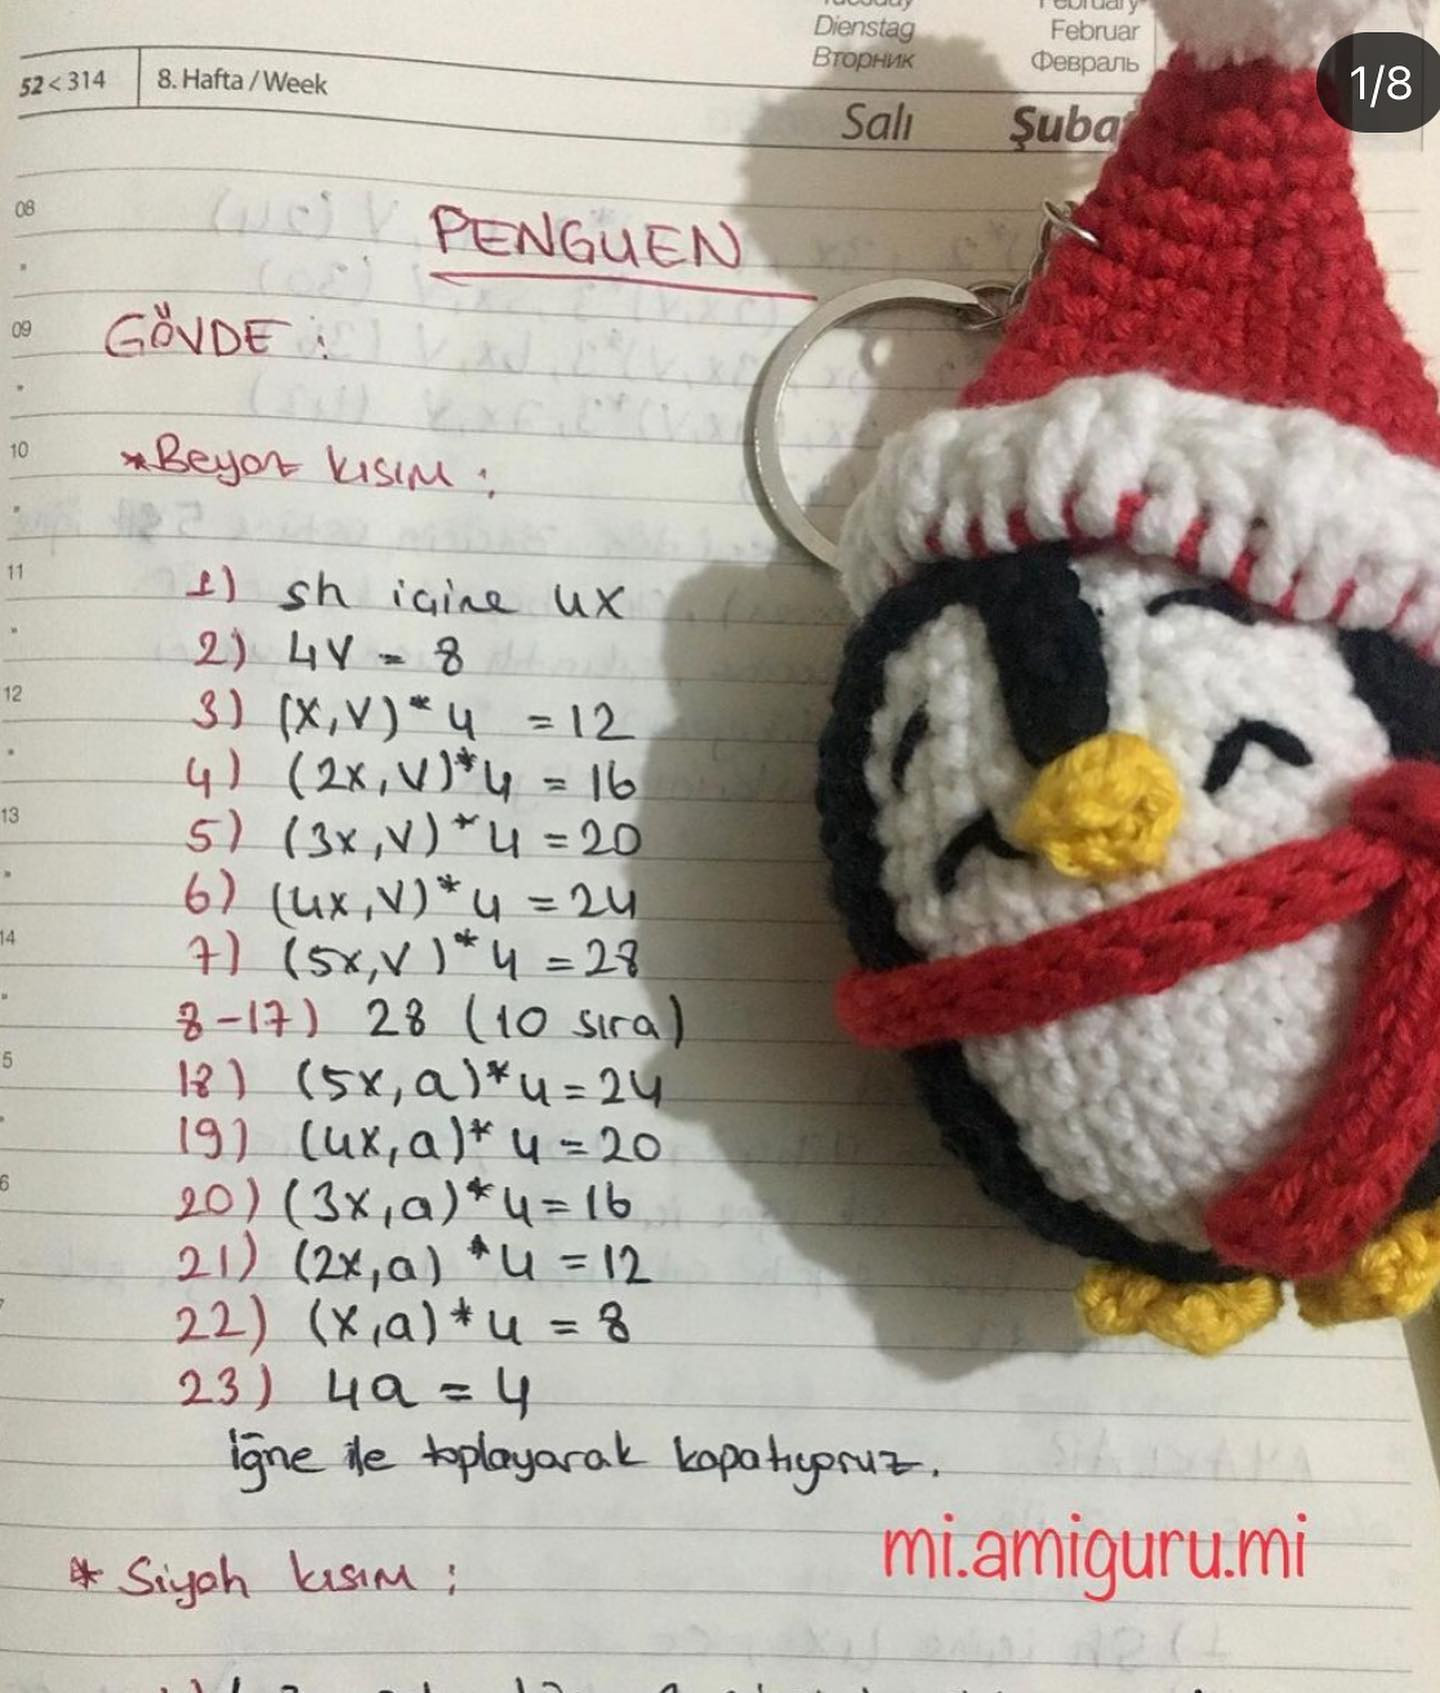 Dienstag Februar
Вторник Февраль
52<314 8. Hafta / Week
Salı Şuba
1/8
08
PENGUEN
09
GÖVDE :
10
*Beyaz kısım :
11
1) sh içine 4x
2) 4V - 8
12
3) (x,V)*4 =12
4) (2x,V)*4 = 16
13
5) (3x,V)*4 =20
6) (4x,V)*4 =24
14
7) (5x,V)*4 =28
8-17) 28 (10 sıra)
5
18) (5x,a)*4=24
19) (4x,a)*4=20
6
20) (3x,a)*4=16
21) (2x,a)*4=12
22) (x,a)*4 = 8
23) 4a = 4
iğne ile toplayarak kapatıyoruz.
mi.amiguru.mi
* Siyah kısım :